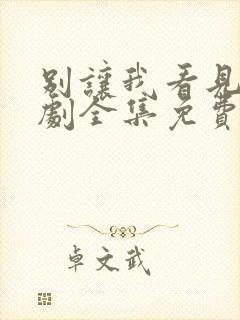 別讓我看見
劇全集免費
卓文武